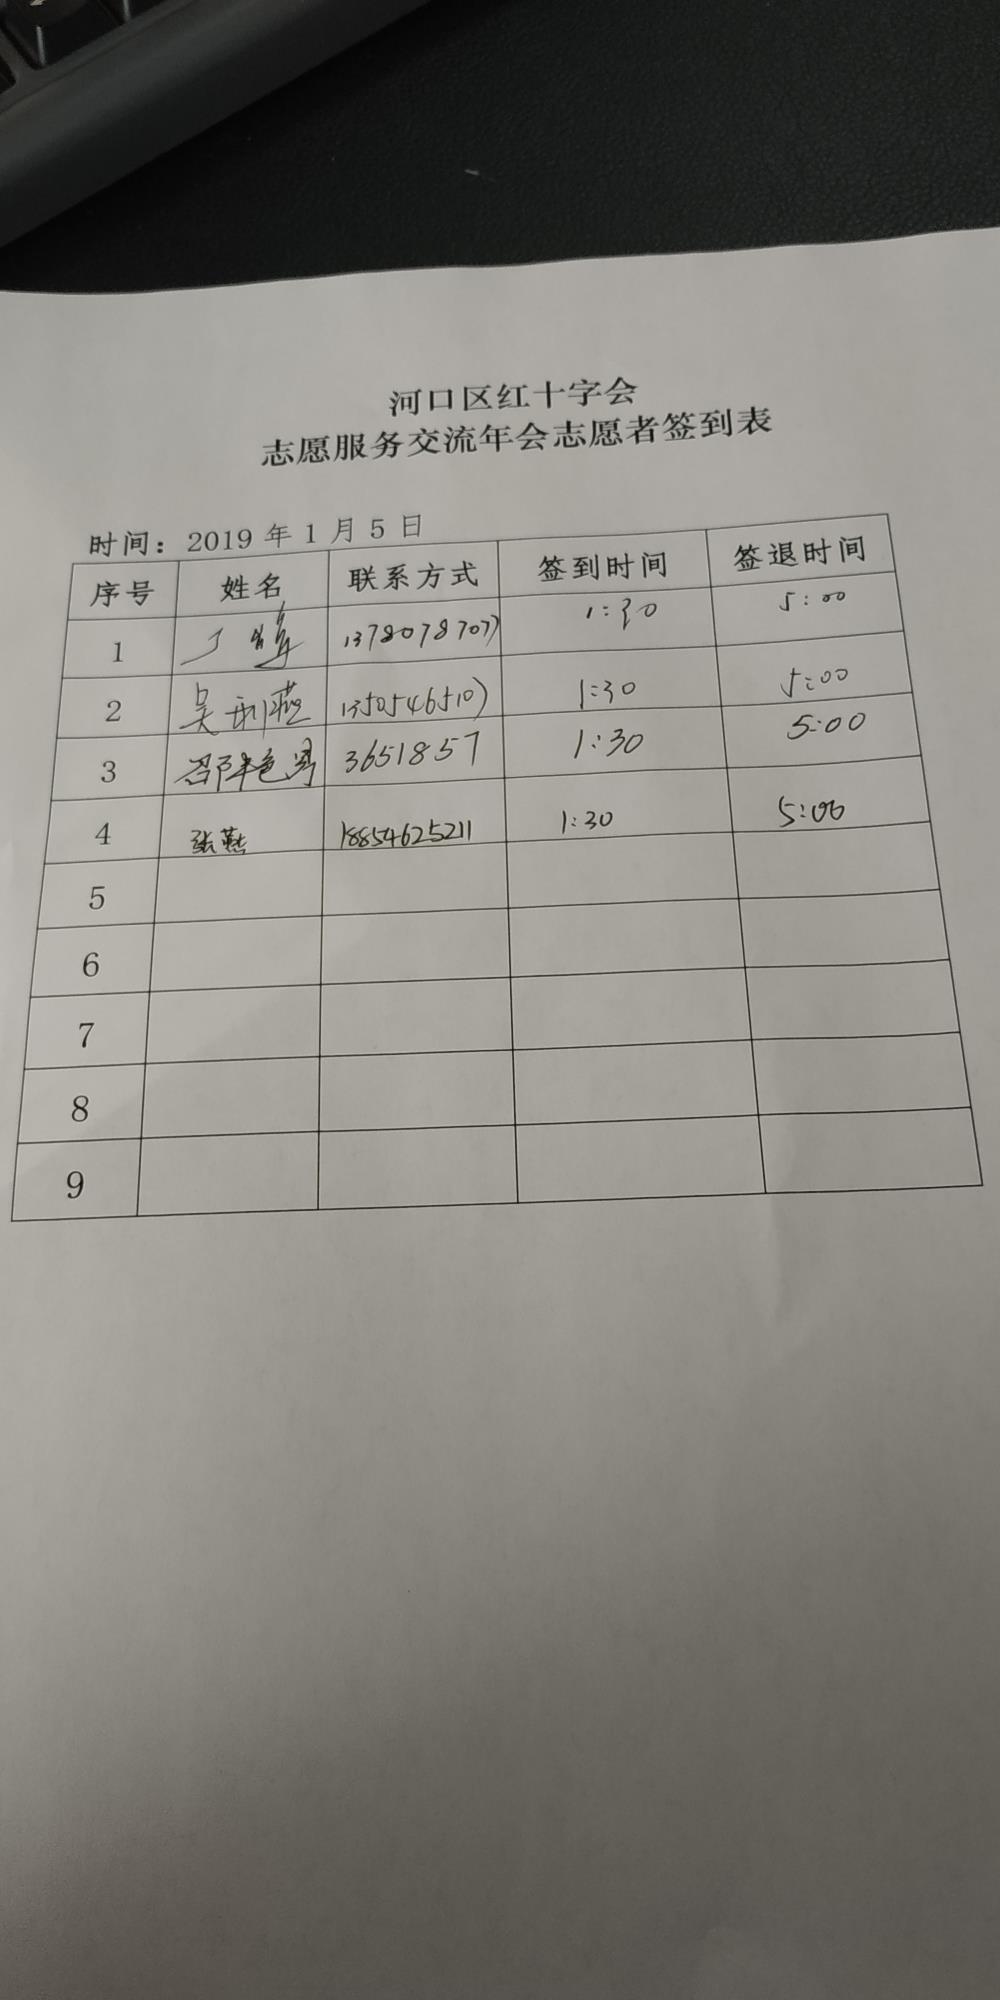 河口区红十字会
志愿服务交流年会志愿者签到表
时间：2019 年 1 月 5 日
序号 姓名 联系方式 签到时间 签退时间
1 丁 13780787077 1:30 5:00
2 吴利燕 13505465107 1:30 5:00
3 3651857 1:30 5:00
4 张燕 18854625211 1:30 5:00
5
6
7
8
9